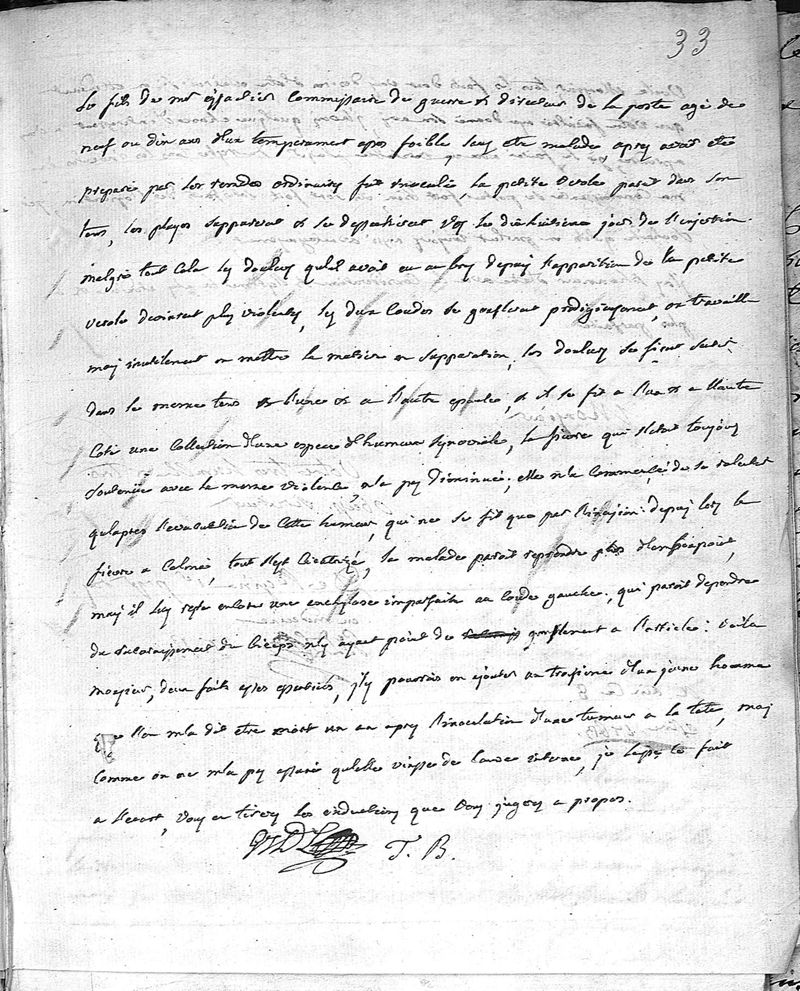 33
Le fils de mr Commissaire de guerre et directeur de la poste agé de
neuf ou dix ans d'un temperament asses foible sans etre malade apres avoir eté
preparé par les remedes ordinaires fut inoculé la petite verole parut dans son
tems, les playes supparerent et se dessecherent vers le dixhuitieme jour de l'injection.
malgré tout cela les douleurs qu'il avoit eu au bras depuis l'apparition de la petite
verole devinrent plus violentes, les deux coudes se gonflerent prodigieusement, on travailla
mais inutilement a mettre la matiere en suppuration, les douleurs se firent sentir
dans le meme tems a l'une et a l'autre epaule, et il se fit a l'un et a l'autre
coté une collection d'une espece d'humeur synoviale, la fievre qui s'etoit toujours
soutenüe avec la meme violence n'a pas diminué; elle n'a commencé de se ralentir
qu'apres l'evacuation de cette humeur, qui ne se fit que par depuis lors la
fievre a calmé, tout s'est cicatrizé, le malade paroit reprendre plus d'embonpoint,
mais il luy reste encore une anchylose imparfaite au coude gauche; qui paroit dependre
du du biceps n'y ayant point de gonflement a l'article: voila
monsieur, deux faits asses essentiels, j'y pourrois en ajouter un troisieme d'un jeune homme
que l'on m'a dit etre mort un an apres l'inoculation d'une tumeur a la tete, mais
comme on ne m'a pas assuré qu'elle vinsse de cause interne, je laisse ce fait
a l'ecart, vous en tirerez les inductions que vous jugerez a propos.
T. B.